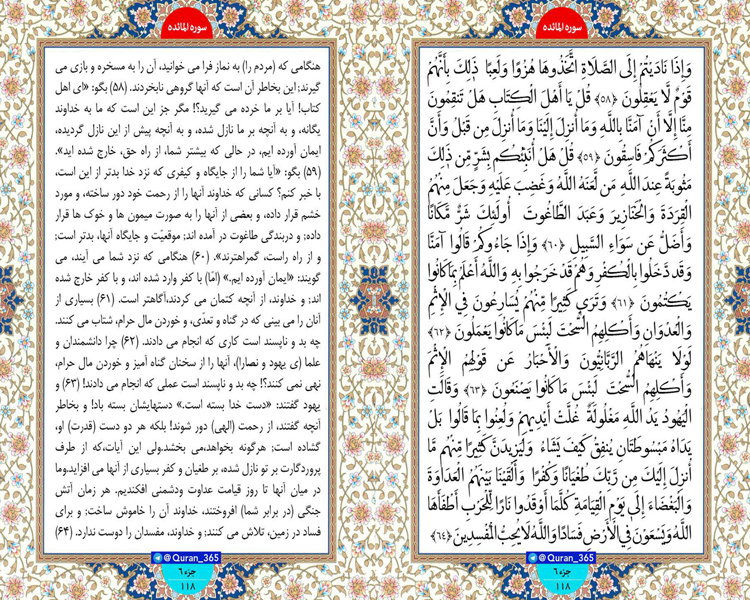 سوره المائده
وَإِذَا نَادَيْتُمْ إِلَى الصَّلَاةِ اتَّخَذُوهَا هُزُوًا وَلَعِبًا ذَٰلِكَ بِأَنَّهُمْ
قَوْمٌ لَّا يَعْقِلُونَ ﴿۵۸﴾ قُلْ يَا أَهْلَ الْكِتَابِ هَلْ تَنقِمُونَ
مِنَّا إِلَّا أَنْ آمَنَّا بِاللَّهِ وَمَا أُنزِلَ إِلَيْنَا وَمَا أُنزِلَ مِن قَبْلُ وَأَنَّ
أَكْثَرَكُمْ فَاسِقُونَ ﴿۵۹﴾ قُلْ هَلْ أُنَبِّئُكُم بِشَرٍّ مِّن ذَٰلِكَ
مَثُوبَةً عِندَ اللَّهِ مَن لَّعَنَهُ اللَّهُ وَغَضِبَ عَلَيْهِ وَجَعَلَ مِنْهُمُ
الْقِرَدَةَ وَالْخَنَازِيرَ وَعَبَدَ الطَّاغُوتَ أُولَٰئِكَ شَرٌّ مَّكَانًا
وَأَضَلُّ عَن سَوَاءِ السَّبِيلِ ﴿۶۰﴾ وَإِذَا جَاءُوكُمْ قَالُوا آمَنَّا
وَقَد دَّخَلُوا بِالْكُفْرِ وَهُمْ قَدْ خَرَجُوا بِهِ وَاللَّهُ أَعْلَمُ بِمَا كَانُوا
يَكْتُمُونَ ﴿۶۱﴾ وَتَرَىٰ كَثِيرًا مِّنْهُمْ يُسَارِعُونَ فِي الْإِثْمِ
وَالْعُدْوَانِ وَأَكْلِهِمُ السُّحْتَ لَبِئْسَ مَا كَانُوا يَعْمَلُونَ ﴿۶۲﴾
لَوْلَا يَنْهَاهُمُ الرَّبَّانِيُّونَ وَالْأَحْبَارُ عَن قَوْلِهِمُ الْإِثْمَ
وَأَكْلِهِمُ السُّحْتَ لَبِئْسَ مَا كَانُوا يَصْنَعُونَ ﴿۶۳﴾ وَقَالَتِ
الْيَهُودُ يَدُ اللَّهِ مَغْلُولَةٌ غُلَّتْ أَيْدِيهِمْ وَلُعِنُوا بِمَا قَالُوا بَلْ
يَدَاهُ مَبْسُوطَتَانِ يُنفِقُ كَيْفَ يَشَاءُ وَلَيَزِيدَنَّ كَثِيرًا مِّنْهُم مَّا
أُنزِلَ إِلَيْكَ مِن رَّبِّكَ طُغْيَانًا وَكُفْرًا وَأَلْقَيْنَا بَيْنَهُمُ الْعَدَاوَةَ
وَالْبَغْضَاءَ إِلَىٰ يَوْمِ الْقِيَامَةِ كُلَّمَا أَوْقَدُوا نَارًا لِّلْحَرْبِ أَطْفَأَهَا
اللَّهُ وَيَسْعَوْنَ فِي الْأَرْضِ فَسَادًا وَاللَّهُ لَا يُحِبُّ الْمُفْسِدِينَ ﴿۶۴﴾
@Quran_365
جزء ۶
۱۱۸
سوره المائده
هنگامی که (مردم را) به نماز فرا می خوانید، آن را به مسخره و بازی می
گیرند؛ این بخاطر آن است که آنها گروهی نابخردند. (۵۸) بگو: «ای اهل
کتاب! آیا بر ما خرده می گیرید؟! مگر جز این است که ما به خداوند
یگانه، و به آنچه بر ما نازل شده، و به آنچه پیش از این نازل گردیده،
ایمان آورده ایم، در حالی که بیشتر شما، از راه حق، خارج شده اید».
(۵۹) بگو: «آیا شما را از جایگاه و کیفری که نزد خدا بدتر از این است،
با خبر کنم؟ کسانی که خداوند آنها را از رحمت خود دور ساخته، و مورد
خشم قرار داده، و بعضی از آنها را به صورت میمون ها و خوک ها قرار
داده; و دربندگی طاغوت در آمده اند; موقعیّت و جایگاه آنها، بدتر است;
و از راه راست، گمراهترند». (۶۰) هنگامی که نزد شما می آیند، می
گویند: «ایمان آورده ایم.» (امّا) با کفر وارد شده اند، و با کفر خارج شده
اند; و خداوند، از آنچه کتمان می کردند،آگاهتر است. (۶۱) بسیاری از
آنان را می بینی که در گناه و تعدّی، و خوردن مال حرام، شتاب می کنند.
چه بد و ناپسند است کاری که انجام می دادند. (۶۲) چرا دانشمندان و
علما (ی یهود و نصارا)، آنها را از سخنان گناه آمیز و خوردن مال حرام،
نهی نمی کنند؟! چه بد و ناپسند است عملی که انجام می دادند! (۶۳) و
یهود گفتند: «دست خدا بسته است.» دستهایشان بسته باد! و بخاطر
آنچه گفتند، از رحمت (الهی) دور شوند! بلکه هر دو دست (قدرت) او،
گشاده است; هرگونه بخواهد،می بخشد.ولی این آیات،که از طرف
پروردگارت بر تو نازل شده، بر طغیان و کفر بسیاری از آنها می افزاید.وما
در میان آنها تا روز قیامت عداوت ودشمنی افکندیم. هر زمان آتش
جنگی (در برابر شما) افروختند، خداوند آن را خاموش ساخت; و برای
فساد در زمین، تلاش می کنند; و خداوند، مفسدان را دوست ندارد. (۶۴)
@Quran_365
جزء ۶
۱۱۸